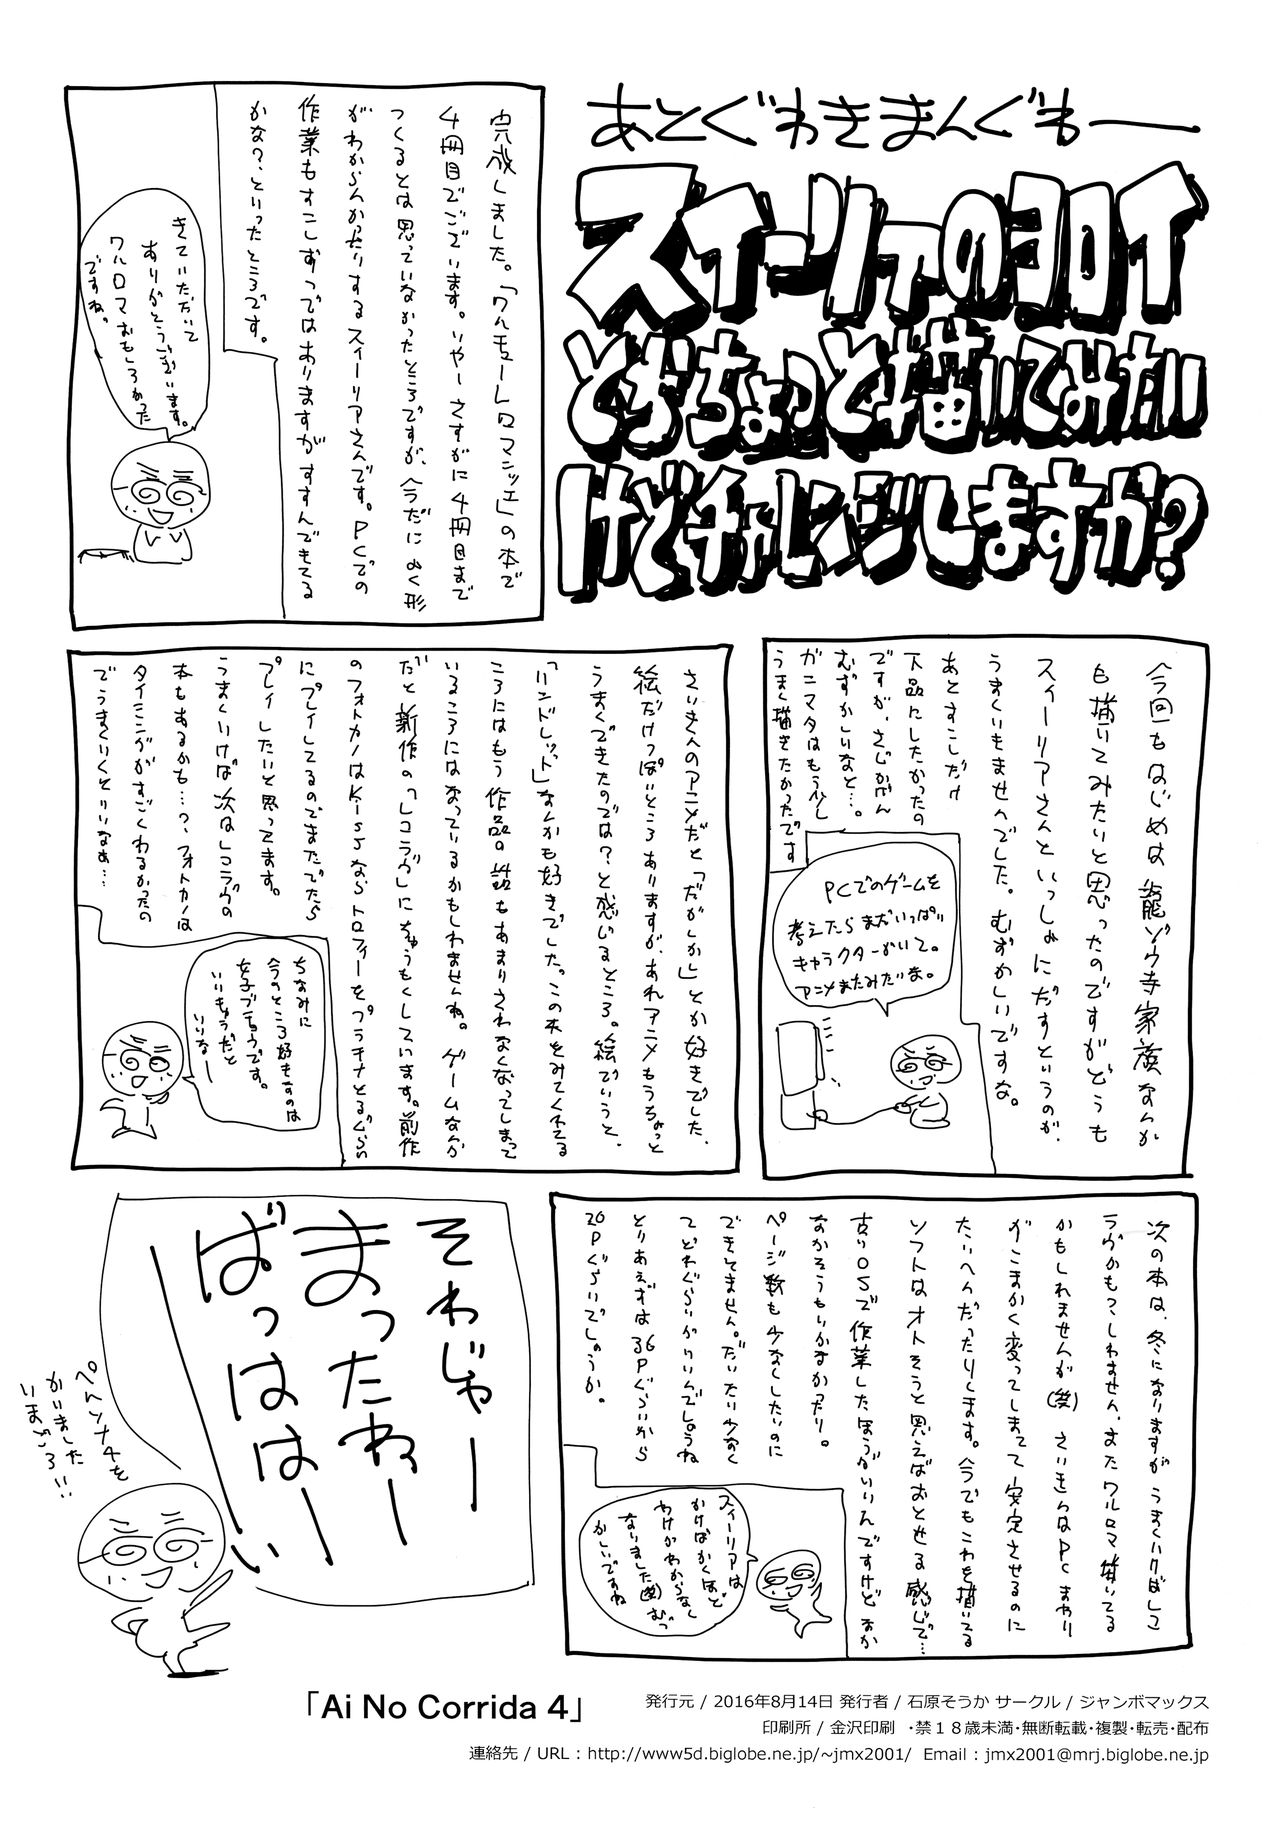 あとぐわきまんぐもー
スイーリアのヨロイ
とかちょっと描いてみたい
けどチャレンジしますか?
完成しました。「ワルキューレロマンツェ」の本で
4冊目でございます。いやーさすがに4冊目まで
つくるとは思っていなかったところですが、今だによく形
がわからんかったりするスイーリアさんです。PCでの
作業もすこしずつではありますがすすんでもてる
かな?、といったところです。
きていただいて
ありがとうございます。
ワルロマおもしろかった
ですね。
今回もはじめは龍ゾウ寺家族なんか
も描いてみたいと思ったのですがどうも
スイーリアさんといっしょにだすというのが、
うまくいきませんでした。むずかしいですな。
あとすこしだけ
下品にしたかったの
ですが、さじかげん
むずかしいなと…。
ガニマタはもう少し
うまく描きたかったです
PCでのゲームを
考えたらまだいっぱい
キャラクターがいて。
アニメまたみたいな。
さいきんのアニメだと「だがしかし」とか好きでした、
絵だけっぽいところありますが、あれアニメもうちょっと
うまくできたのでは?と感じるところ。絵でいうと、
「ハンドレッド」なんかも好きでした。この本をみてくれてる
ころにはもう作品の話もあまりされなくなってしまって
いるころにはなっているかもしれませんね。ゲームなんか
だと新作の「レコラヴ」にちゅうもくしています。前作
のフォトカノはKissならトロフィーをプラチナとるぐらい
にプレイしてるのでまたでたら
プレイしたいと思ってます。
うまくいけば次はレコラヴの
本もあるかも…?、フォトカノは
タイミングがすごくわるかったの
でうまくいくといいなぁ…
ちなみに
今のところ好きなのは
女子プチョウです。
いいきょうだと
いいなー
次の本は、冬になりますがうまくいけばレコ
ラヴかもっしれません、またワルロマ描いてる
かもしれませんが(笑) さいきんはPCまわり
がこまかく変ってしまって安定させるのに
たいへんだったりします。今でもこれを描いてる
ソフトはオトそうと思えばおとせる感じで…
古いOSで作業したほうがいいんですけどなか
なかそうもいかなかったり。
ページ数も少なくしたいのに
できてません。だいたい少なく
てどれぐらいがいいんでしょうね
とりあえずは36Pぐらいから
20Pぐらいでしょうか。
スイーリアは
かけばかくほど
わけがわからなく
なりました(笑)むつ
かしいですね
それじゃー
まったねー
ばっはは〜い
ペルソナ4を
かいました
いまごろ!!
「Ai No Corrida 4」
発行元 / 2016年8月14日 発行者 / 石原そうか サークル / ジャンボマックス
印刷所 / 金沢印刷 ・禁18歳未満・無断転載・複製・転売・配布
連絡先 / URL : http://www5d.biglobe.ne.jp/~jmx2001/ Email : jmx2001@mrj.biglobe.ne.jp